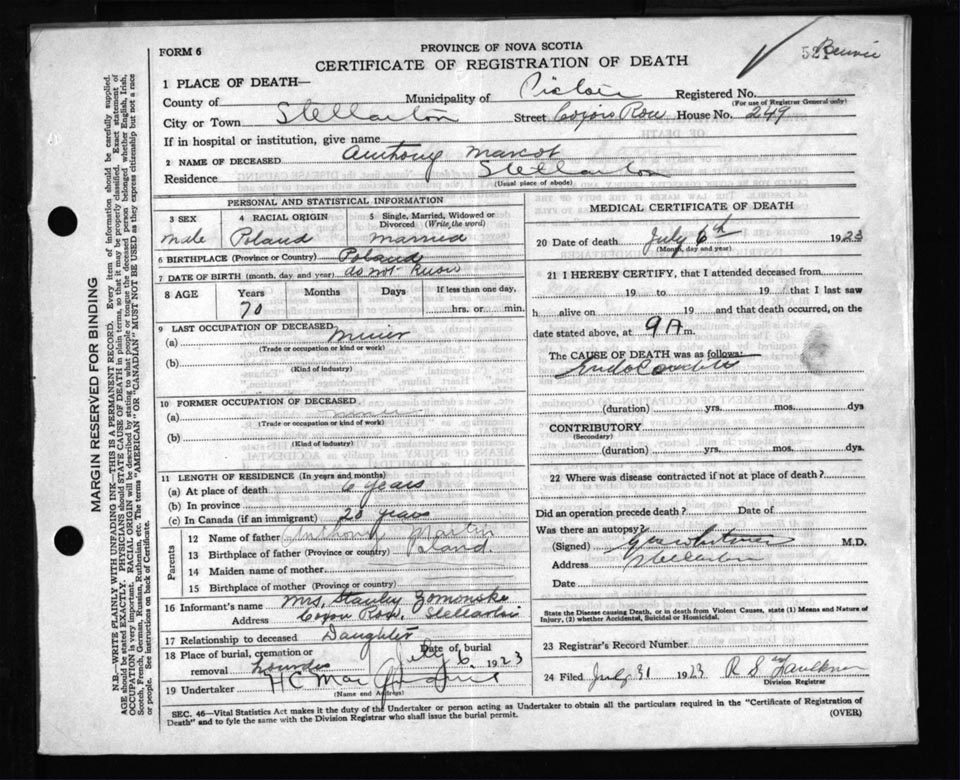 FORM 6
PROVINCE OF NOVA SCOTIA
CERTIFICATE OF REGISTRATION OF DEATH
1 PLACE OF DEATH—
County of Municipality of Pictou Registered No.
(For use of Registrar General only)
City or Town Stellarton Street Row House No. 249
If in hospital or institution, give name
2 NAME OF DECEASED Anthony Marcot
Residence Stellarton
(Usual place of abode)
PERSONAL AND STATISTICAL INFORMATION
3 SEX 4 RACIAL ORIGIN 5 Single, Married, Widowed or Divorced (Write the word)
Male Poland Married
6 BIRTHPLACE (Province or Country) Poland
7 DATE OF BIRTH (month, day and year) do not know
8 AGE Years Months Days If less than one day,
70 hrs. or min.
9 LAST OCCUPATION OF DECEASED
(a) Miner
(Trade or occupation or kind or work)
(b)
(Kind of industry)
10 FORMER OCCUPATION OF DECEASED
(a)
(Trade or occupation or kind of work)
(b)
(Kind of industry)
11 LENGTH OF RESIDENCE (In years and months)
(a) At place of death 6 years
(b) In province
(c) In Canada (if an immigrant) 20 years
Parents
12 Name of father Anthony
13 Birthplace of father (Province or country) Poland.
14 Maiden name of mother
15 Birthplace of mother (Province or country)
16 Informant's name Mrs. Stanley Zomonske
Address Row, Stellarton
17 Relationship to deceased Daughter
18 Place of burial, cremation or removal Lourdes Date of burial July 6, 1923
19 Undertaker H C Mac
(Name and Address)
MEDICAL CERTIFICATE OF DEATH
20 Date of death July 6th 1923
(Month, day and year)
21 I HEREBY CERTIFY, that I attended deceased from
19 to 19 that I last saw
h alive on 19 and that death occurred, on the
date stated above, at 9 A m.
The CAUSE OF DEATH was as follows:
Endocarditis
(duration) yrs. mos. dys
CONTRIBUTORY
(Secondary)
(duration) yrs. mos. dys
22 Where was disease contracted if not at place of death?
Did an operation precede death? Date of
Was there an autopsy?
(Signed) M.D.
Address Stellarton
Date
State the Disease causing Death, or in death from Violent Causes, state (1) Means and Nature of
Injury, (2) whether Accidental, Suicidal or Homicidal.
23 Registrar's Record Number
24 Filed July 31 1923 R S Faulkner
Division Registrar
SEC. 46—Vital Statistics Act makes it the duty of the Undertaker or person acting as Undertaker to obtain all the particulars required in the "Certificate of Registration of
Death" and to fyle the same with the Division Registrar who shall issue the burial permit.
(OVER)
MARGIN RESERVED FOR BINDING
N.B.—WRITE PLAINLY WITH UNFADING INK—THIS IS A PERMANENT RECORD. Every item of information should be carefully supplied.
AGE should be stated EXACTLY. PHYSICIANS should STATE CAUSE OF DEATH in plain terms, so that it may be properly classified. Exact statement of
OCCUPATION is very important. RACIAL ORIGIN will be described by stating to what people or tongue the deceased person belonged whether English, Irish,
Scotch, French, German, Russian, Ruthenian, etc. The terms "AMERICAN" OR "CANADIAN" MUST NOT BE USED as they express citizenship but not a race
or people. See instructions on back of Certificate.